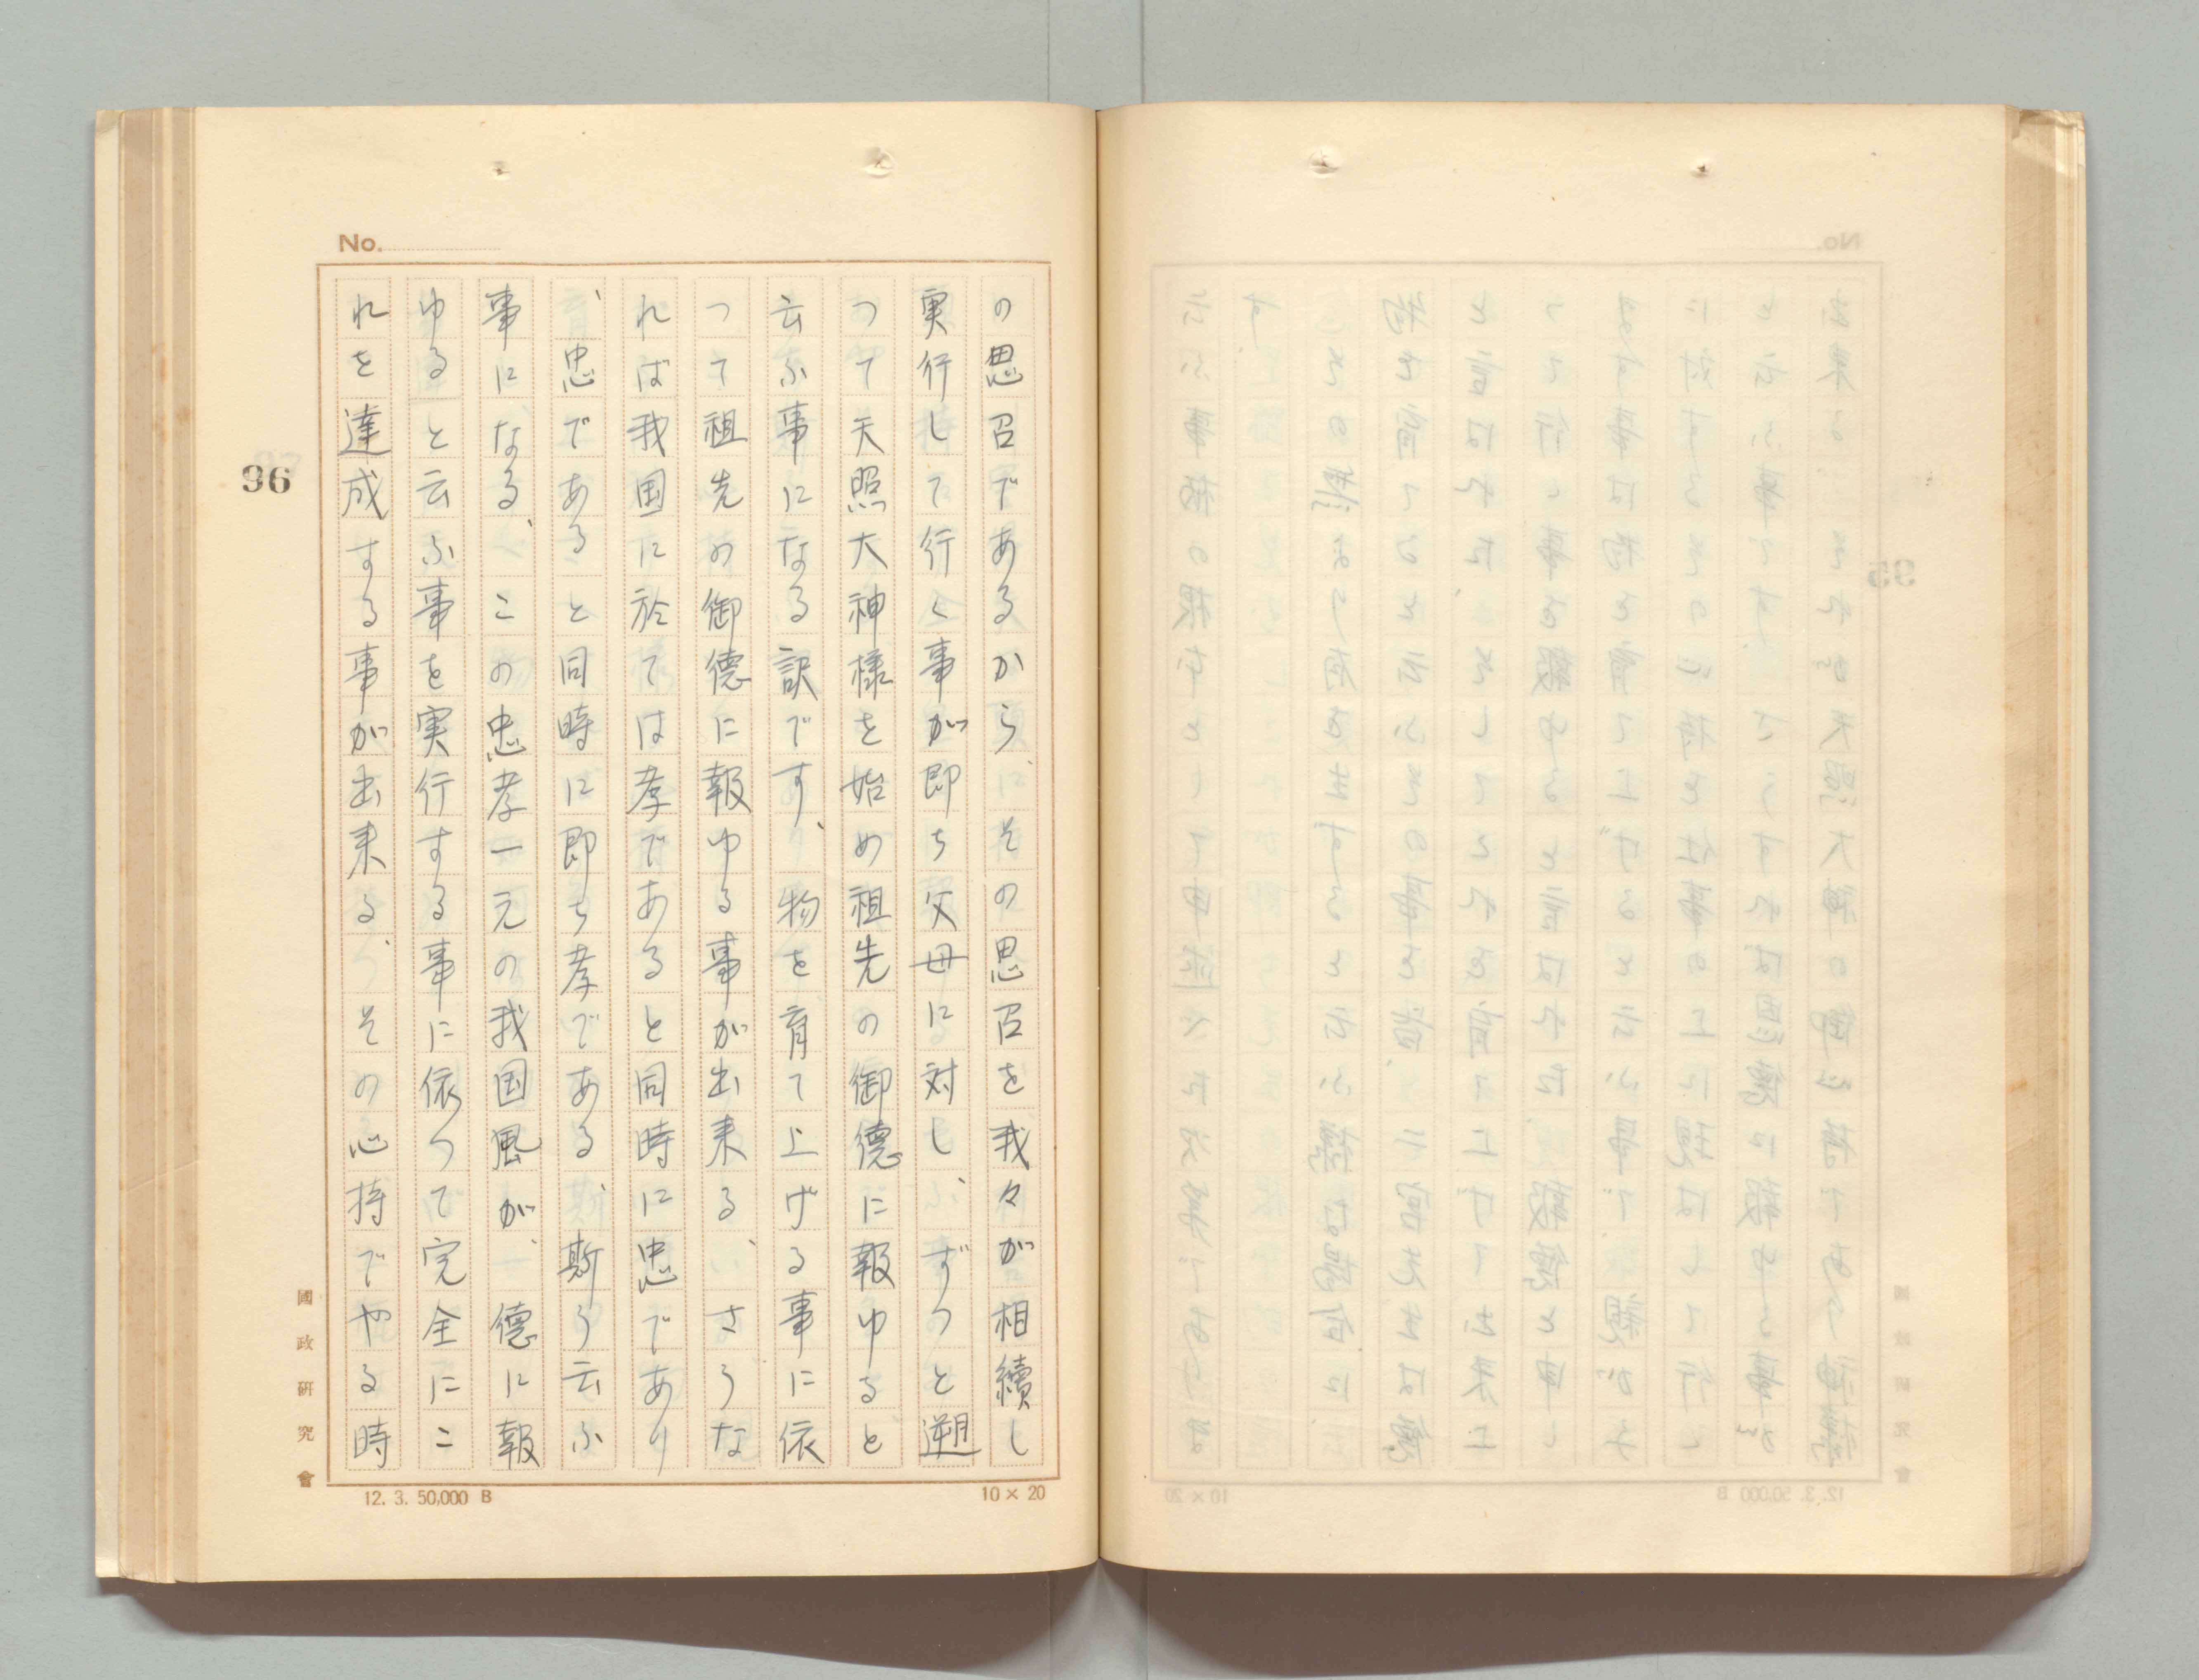 No.
の思召であるから、その思召を我々が相續し
実行して行く事が即ち父母に対し、ずつと遡
つて天照大神様を始め祖先の御德に報ゆると
云ふ事になる訳です、物を育て上げる事に依
つて祖先の御德に報ゆる事が出来る、さうな
れば我国に於ては孝であると同時に忠であり
、忠であると同時に即ち孝である、斯う云ふ
事になる、この忠孝一元の我国風が、德に報
ゆると云ふ事を実行する事に依つて完全にこ
れを達成する事が出来る、その心持でやる時
96
國政研究會
12. 3. 50,000 B
10 × 20